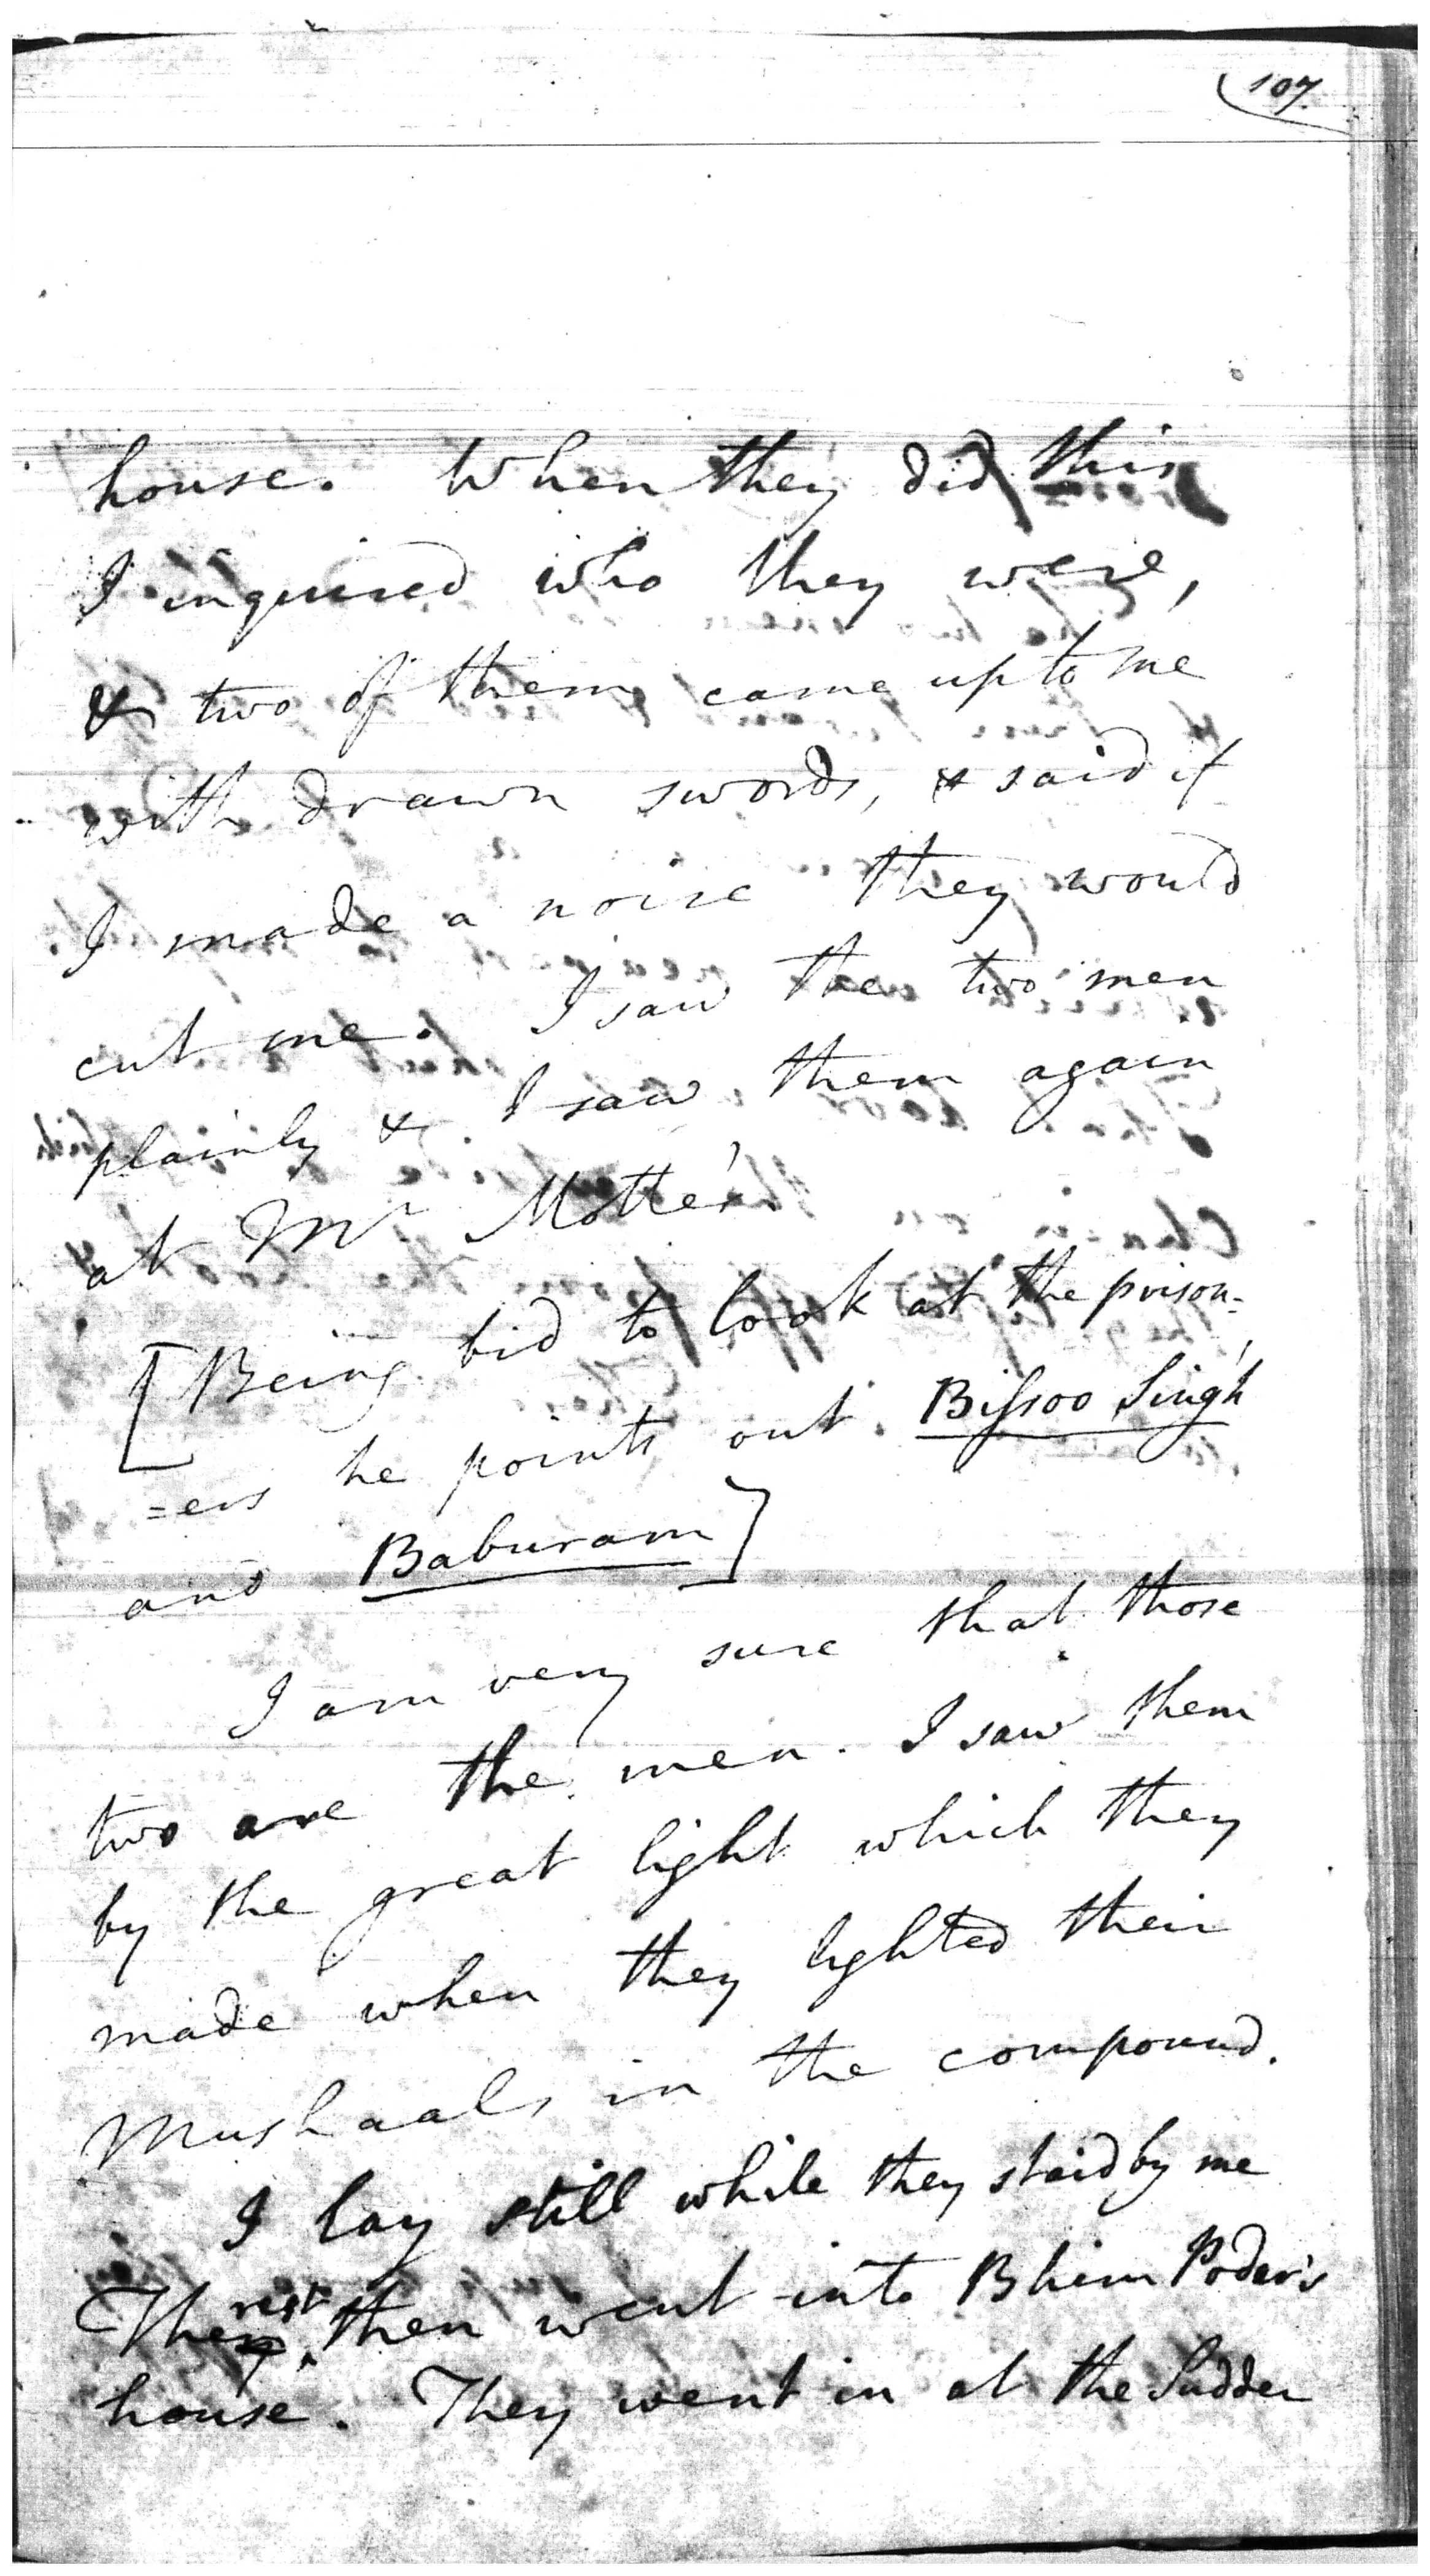 107.
house. When they did this
I inquired who they were,
& two of them came up to me
with drawn swords, & said if
I made a noise they would
cut me. I saw the two men
plainly & I saw them again
at Mr Motte's.
[Being bid to look at the prison-
=ers he points out Bissoo Singh
and Baburam]
I am very sure that those
two are the men. I saw them
by the great light which they
made when they lighted their
Mushaals in the compound.
I lay still while they staid by me
The rest then went into Bhim Poder's
house. They went in at the Sudder